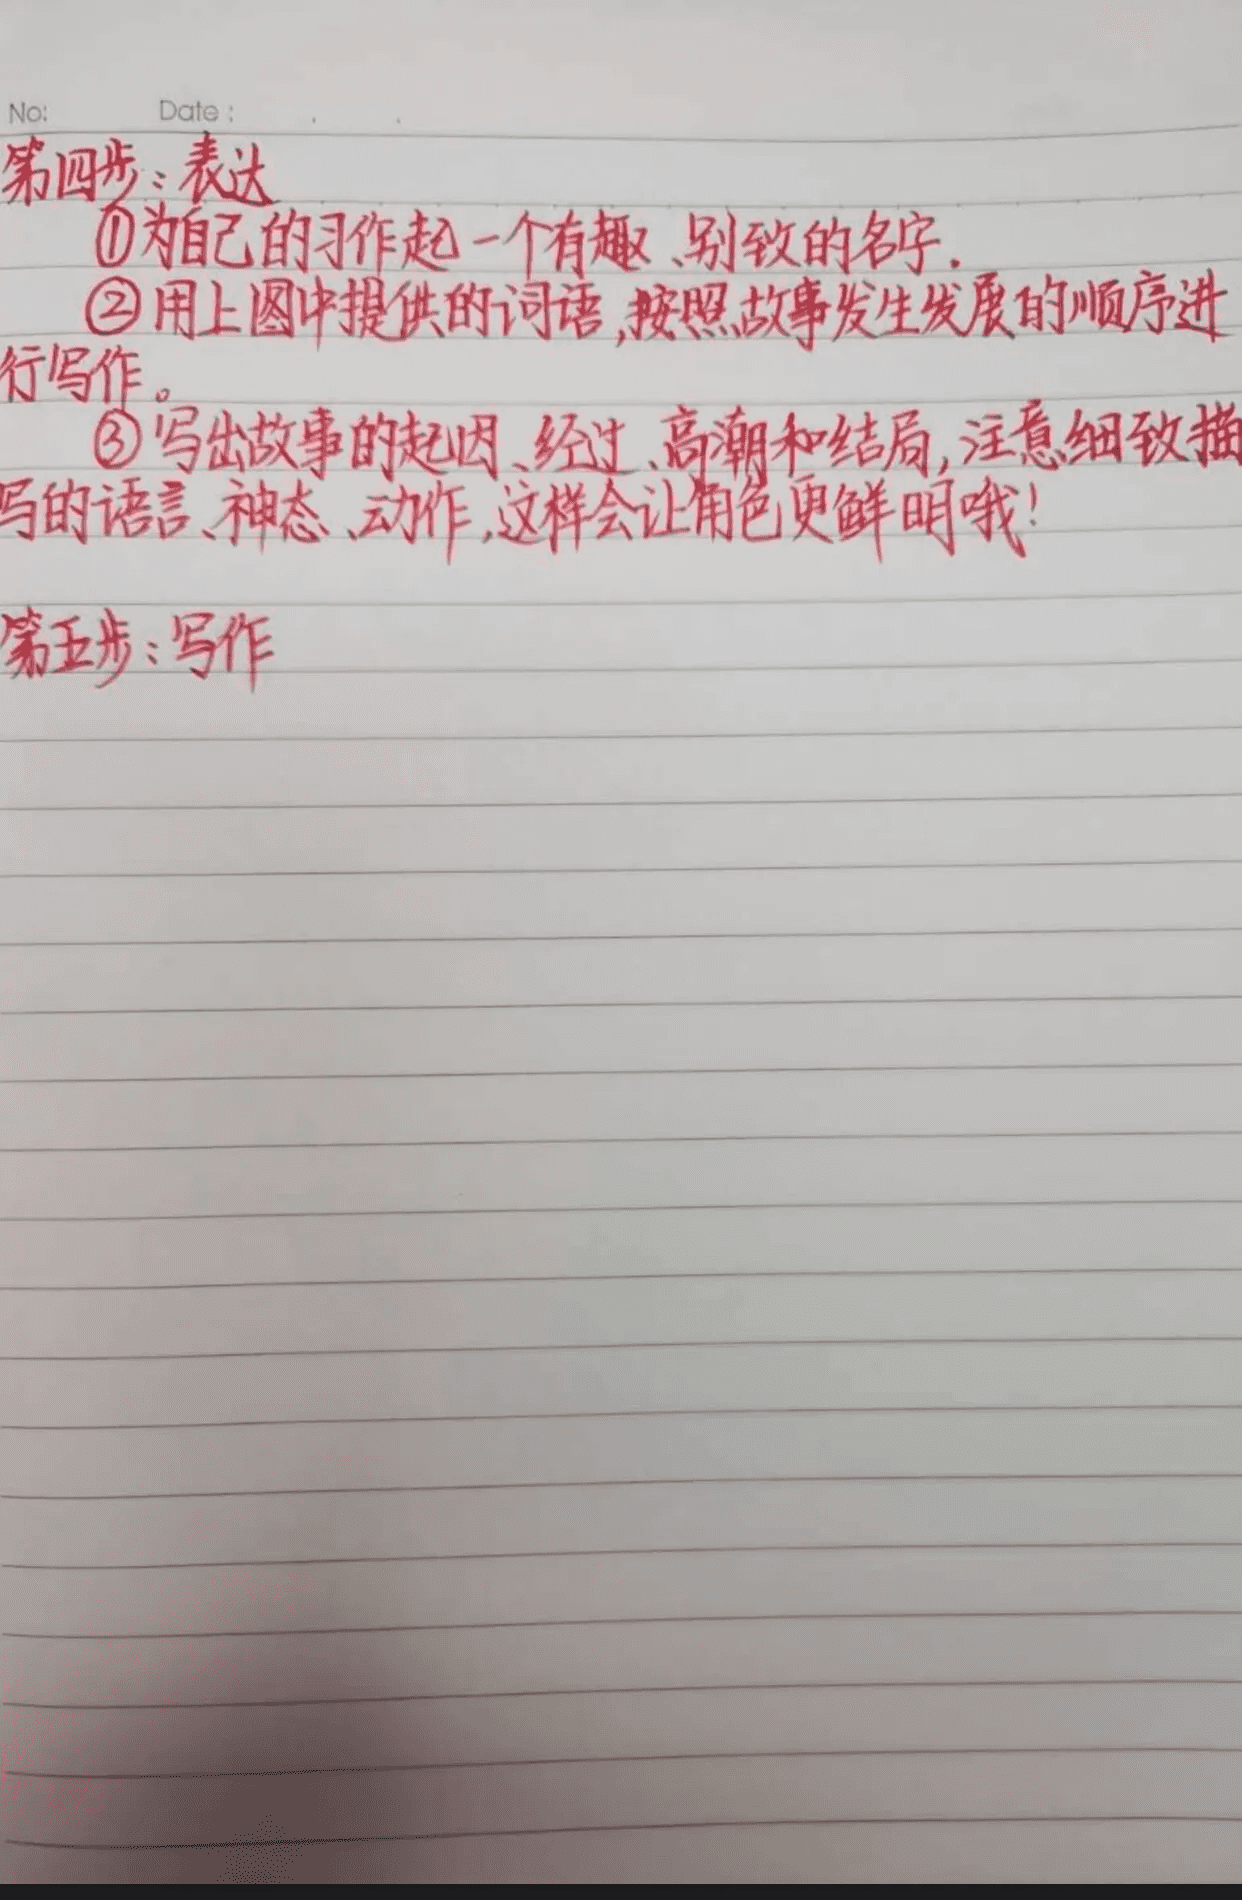 No:    Date :
第四步:表达
①为自己的习作起一个有趣、别致的名字.
②用上图中提供的词语,按照故事发生发展的顺序进
行写作。
③写出故事的起因、经过、高潮和结局,注意细致描
写的语言、神态、动作,这样会让角色更鲜明哦!
第五步:写作